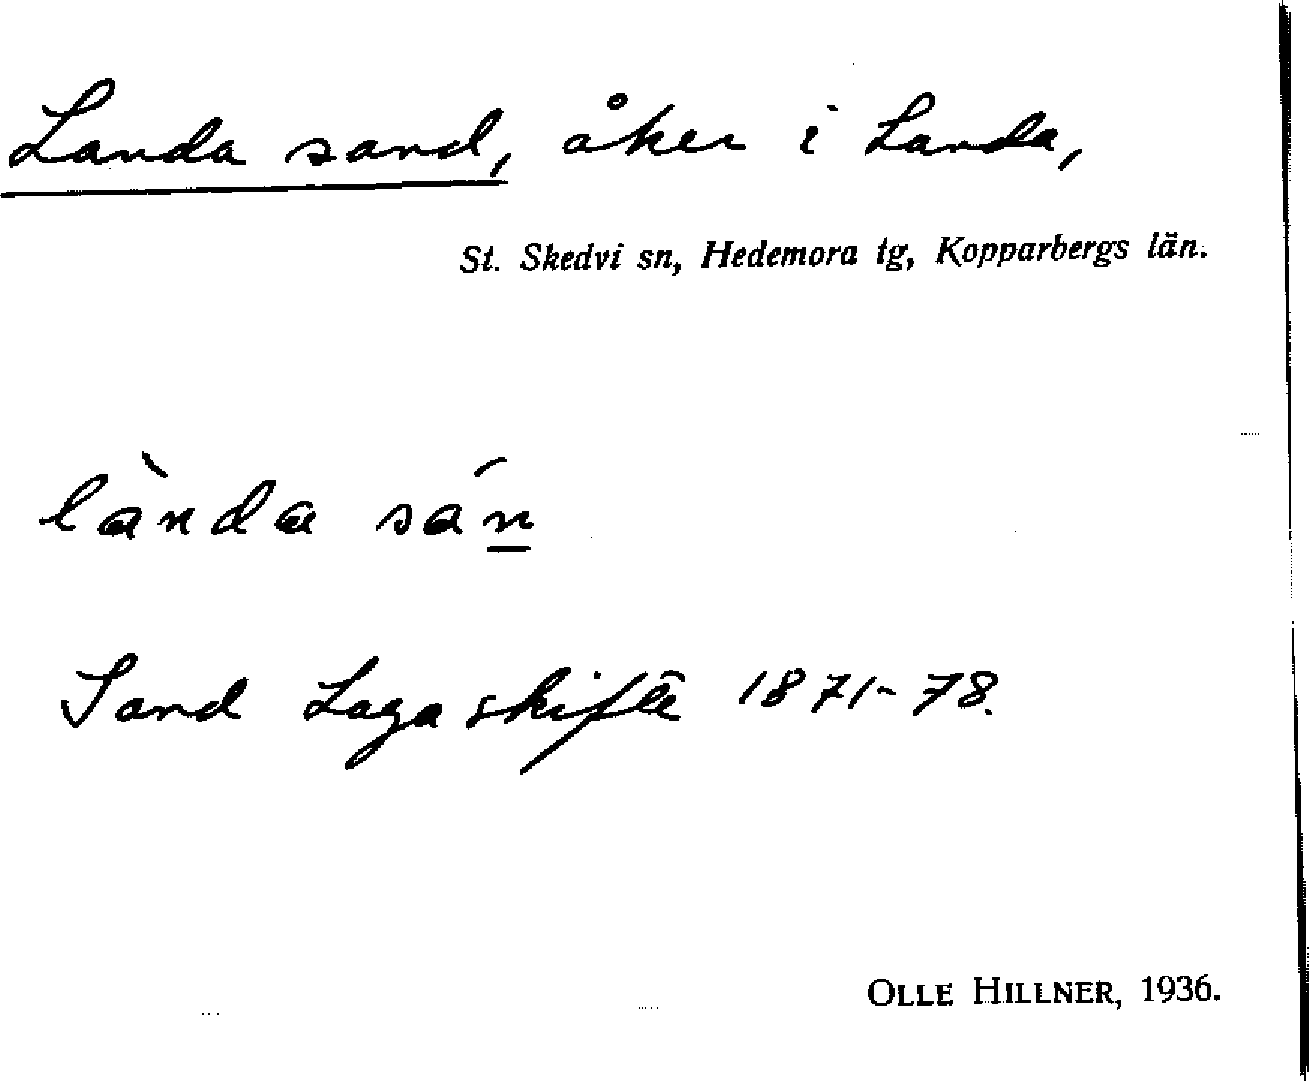 Landa sand, åker i Landa,
St. Skedvi sn, Hedemora tg, Kopparbergs län.
lànda sán
Sand Laga skifte 1871-78.
OLLE HILLNER, 1936.